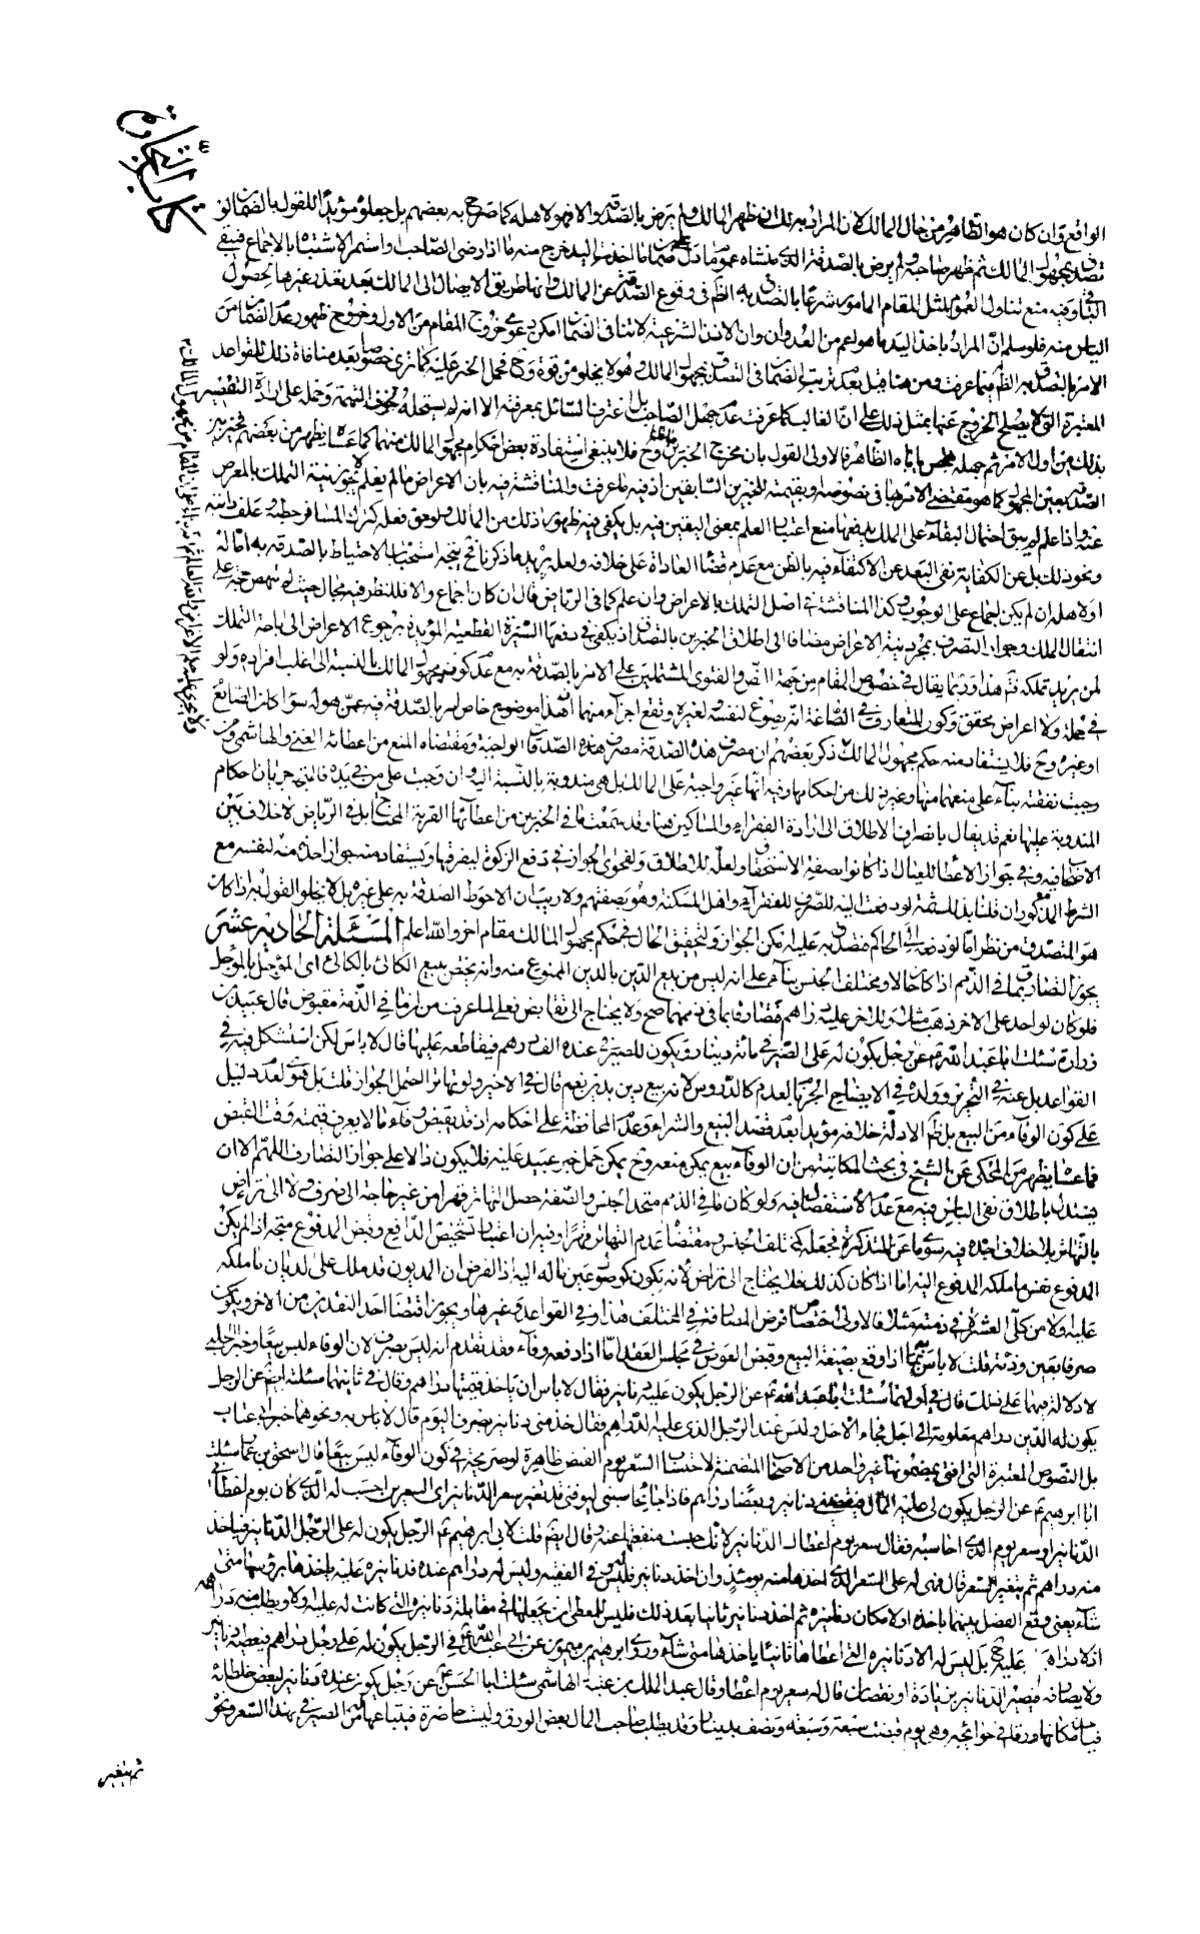 كتاب التجارة
الواقع وان كان هو الظاهر من حال المالك لان المراد به ذلك ان ظهر المالك ولم يرض بالصدقة والا فهو لاهله كما صرح به بعضهم بل جعلوه مؤيدا للقول بالضمان لو
تصدق بمجهول المالك ثم ظهر صاحبه ولم يرض بالصدقة الذي منشاه عموم ما دل على ضمان ما اخذت اليد خرج منه ما اذا رضى الصاحب او استمر الاشتباه بالاجماع فيبقى
الباقي وفيه منع تناول العموم لمثل المقام المأمور شرعا بالتصدق به الظاهر في وقوع الصدقة عن المالك وانها طريق الايصال الى المالك بعد تعذر غيرها لحصول
الياس منه فلو سلم ان المراد باخذ اليد ما هو اعم من العدوان وان الاذن الشرعية لا تنافى الضمان امكن دعوى خروج المقام من الاول وخروج ظهور عدم الضمان من
الامر بالتصدق به الظاهر فيما عرفت ومن هنا قيل بعدم ترتب الضمان في التصدق بمجهول المالك وهو لا يخلو من قوة وح فحمل الخبر عليه كما ترى خصوصا بعد منافاة ذلك للقواعد
المعتبرة التي لا يصلح الخروج عنها بمثل ذلك على ان الغالب كما عرفت عدم جهل الصاحب بل غرض السائل بمعرفته الا انه لم يستحله لخوف التهمة وحمله على ارادة التفصيل
بذلك من اول الامر ثم حمله ياباه الظاهر فالاولى القول بان مخرج الخبرين وح فلا ينبغى استفادة بعض احكام مجهول المالك منهما كما عساه يظهر من بعضهم
الصدق بعين المجهول كما هو مقتضى الامر بها في نصوصه او بقيمته للخبرين السابقين اذ فيه ما عرفت والمناقشة فيه بان الاعراض ما لم يعلم لا يجوز نية التملك بالمعرض
عنه واذا علم لم يبق احتمال البقاء على الملك يدفعها منع اعتبار العلم بمعنى اليقين فيه بل يكفى فيه ظهور ذلك من المالك ولو حق فعله كترك المسافر حطبه وعلف دابته
ونحو ذلك بل عن الكفاية نفى البعد عن الاكتفاء فيه بالظن مع عدم قضاء العادة على خلافه ولعله يريد ما ذكرنا نعم يتجه استحباب الاحتياط بالصدقة به اما له
او لاهله ان لم يكن اجماع على الوجوب وكذا المناقشة في اصل التملك بالاعراض وان علم كما في الرياض قال ان كان اجماع والا فللنظر فيه مجال حيث لم تنهض حجة على
انتقال الملك وجواز التصرف بمجرد نية الاعراض مضافا الى اطلاق الخبرين بالتصدق اذ يكفى في دفعها السيرة القطعية المؤيدة برجوع الاعراض الى اباحة التملك
لمن يريد تملكه فتم هذا وربما يقال في خصوص المقام من جهة النص والفتوى المشتملين على الامر بالصدقة به مع عدم كونه مجهول المالك بالنسبة الى اغلب افراده ولو
في جملة ولا اعراض يحقق وكون المتعارف في الصاغة انه يصوغ لنفسه ولغيره وتقع اجزاء منهما ان هذا موضوع خاص امر بالصدقة فيه عمن هو له سواء كان الصائغ
او غيره وح فلا يستفاد منه حكم مجهول المالك ذكر بعضهم ان مصرف هذه الصدقة مصرف الصدقات الواجبة ومقتضاه المنع من اعطائه الغنى والهاشمى ومن
وجبت نفقته بناء على منعهما منها وغير ذلك من احكامها وفيه انها غير واجبة على المالك بل هى مندوبة بالنسبة اليه وان وجبت على من في يده فالمتجه جريان احكام
المندوبة عليها نعم قد يقال بانصراف الاطلاق الى ارادة الفقراء والمساكين هنا وقد سمعت ما في الخبرين من اعطائها القريب المحتاج بل في الرياض لا خلاف بين
الاصحاب فيه وفي جواز الاعطاء للعيال اذا كانوا بصفة الاستحقاق ولعله للاطلاق ولفحوى الجواز في دفع الزكوة ليفرقها ويستفاد منه جواز اخذه منه لنفسه مع
الشرط المذكور ان قلنا بالمسئلة لو دفعت اليه للصرف للفقراء واهل المسكنة وهو بصفتهم ولا ريب ان الاحوط الصدقة به على غيره بل لا يخلو القول به اذا كان
هو المتصدق من نظر اما لو دفعه الى الحاكم فتصدق به عليه امكن الجواز ولتحقيق الحال في حكم مجهول المالك مقام اخر والله اعلم المسئلة الحادية عشر
يجوز التقاص بما في الذمم اذا كانا حالا ومختلف الجنس بناء على انه ليس من بيع الدين بالدين الممنوع منه وانه يختص ببيع الكالئ بالكالئ اى المؤجل بالمؤجل
فلو كان لواحد على الاخر ذهب مثلا وللاخر عليه دراهم فتصارفا بما في ذمتهما صح ولا يحتاج الى تقابض فعلى لما عرفت من ان ما في الذمة مقبوض قال عبيد بن
زرارة سئلت ابا عبد الله ع عن رجل يكون له على الصيرفى مائة دينار ويكون للصيرفى عنده الف درهم فيقاطعه عليها قال لا باس لكن استشكل فيه في
القواعد بل عنه في التحرير وولده في الايضاح الجزم بالعدم كالدروس لانه بيع دين بدين نعم قال في الاخير ولو تهاترا احتمل الجواز قلت بل قوى لعدم دليل
على كون الوفاء من البيع بل ظاهر الادلة خلافه مؤيدا بعدم قصد البيع والشراء وعدم المحافظة على احكامه اذ قد يقبض وفاء ما لا يعرف قيمته وقت القبض
فما عساه يظهر من المحكى عن الشيخ في بحث المكاتبة من ان الوفاء بيع يمكن منعه وح يمكن حمل خبر عبيد عليه فلا يكون دالا على جواز التصارف اللهم الا ان
يستدل باطلاق نفى الباس فيه مع عدم الاستفصال فيه ولو كان ما في الذمم متحد الجنس والصفة حصل التهاتر قهرا من غير حاجة الى صرف ولا الى تراض
بالتهاتر بلا خلاف اجده فيه سوى ما عن التذكرة فجعله كمختلف الجنس ومقتضاه عدم التهاتر قهرا وفيه ان اعتبار تشخيص الدافع وقبض المدفوع متجه اذا لم يكن
المدفوع نفس ما ملكه المدفوع اليه اما اذا كان كذلك فلا يحتاج الى تراض لانه يكون كوضع عين ماله اليه اذ الفرض ان المديون قد ملك على الديان ما ملكه
عليه ولا من كل العشرة في ذمته مثلا فالاولى اختصاص فرض المسئلة في المختلف هذا وفي القواعد وغيرها ويجوز اقتضاء احد النقدين من الاخر ويكون
صرفا بعين وذمة قلت لا باس به اذا وقع بصيغة البيع وقبض العوض في مجلس العقد اما اذا دفعه وفاء فقد تقدم انه ليس بصرف لان الوفاء ليس بيعا وخبر الحلبى
لا دلالة فيهما على ذلك قال في اولهما سئلت ابا عبد الله ع عن الرجل يكون عليه دنانير فقال لا باس ان ياخذ قيمتها دراهم وقال في ثانيهما سئلته ايضا عن الرجل
يكون له الدين دراهم معلومة الى اجل فجاء الاجل وليس عند الرجل الذى عليه الدراهم فقال خذ منى دنانير بصرف اليوم قال لا باس به ونحوهما خبر ابى عتاب
بل النصوص المعتبرة التي افتى بمضمونها غير واحد من الاصحاب المتضمنة لاحتساب السعر يوم القبض ظاهرة او صريحة في كون الوفاء ليس بيعا قال اسحق بن عمار سئلت
ابا ابراهيم ع عن الرجل يكون لى عليه المال فيقضينى دنانير وبعضا دراهم فاذا جاء يحاسبنى ليوفينى فلقد تغير سعر الدنانير اى السعرين احسب له الذى كان يوم اعطانى
الدنانير او سعر يوم الذى احاسبه فقال سعر يوم اعطاك الدنانير لانك حبست منفعتها عنه وقال ايضا قلت لابى ابراهيم ع الرجل يكون له على الرجل الدنانير فياخذ
منه دراهم ثم يتغير السعر قال فهى له على السعر الذى اخذها منه يومئذ وان اخذ دنانير فليس في الفقيه وليس له دراهم عنده فدنانيره عليه ياخذها برؤسها متى
شاء يعنى وقع الفصل بينهما باخذه اولا مكان دنانيره ثم اخذ دنانير ثانيا بعد ذلك فليس للمعطى ان يجعلها في مقابلة دنانيره التي كانت له عليه اولا ويطلب منه دراهمه
اذ لا دراهم عليه ح بل ليس له الا دنانيره التي اعطاها ثانيا ياخذها متى شاء وروى ابراهيم بن ميمون عن ابى عبد الله ع في الرجل يكون له على رجل دراهم فيعطيه دنانير
ولا يصارفه فتصير الدنانير بزيادة او نقصان قال له سعر يوم اعطاه وقال عبد الملك بن عتبة الهاشمى سئلت ابا الحسن ع عن رجل يكون عنده دنانير لبعض خلطائه
فياخذ مكانها ورقا في حوائجه وهى يوم قبضت سبعة وسبعة ونصف بدينار وقد يطلب صاحب المال بعض الورق وليست حاضرة فيبتاعها من الصيرفى بهذا السعر ونحوه
ثم يتغير